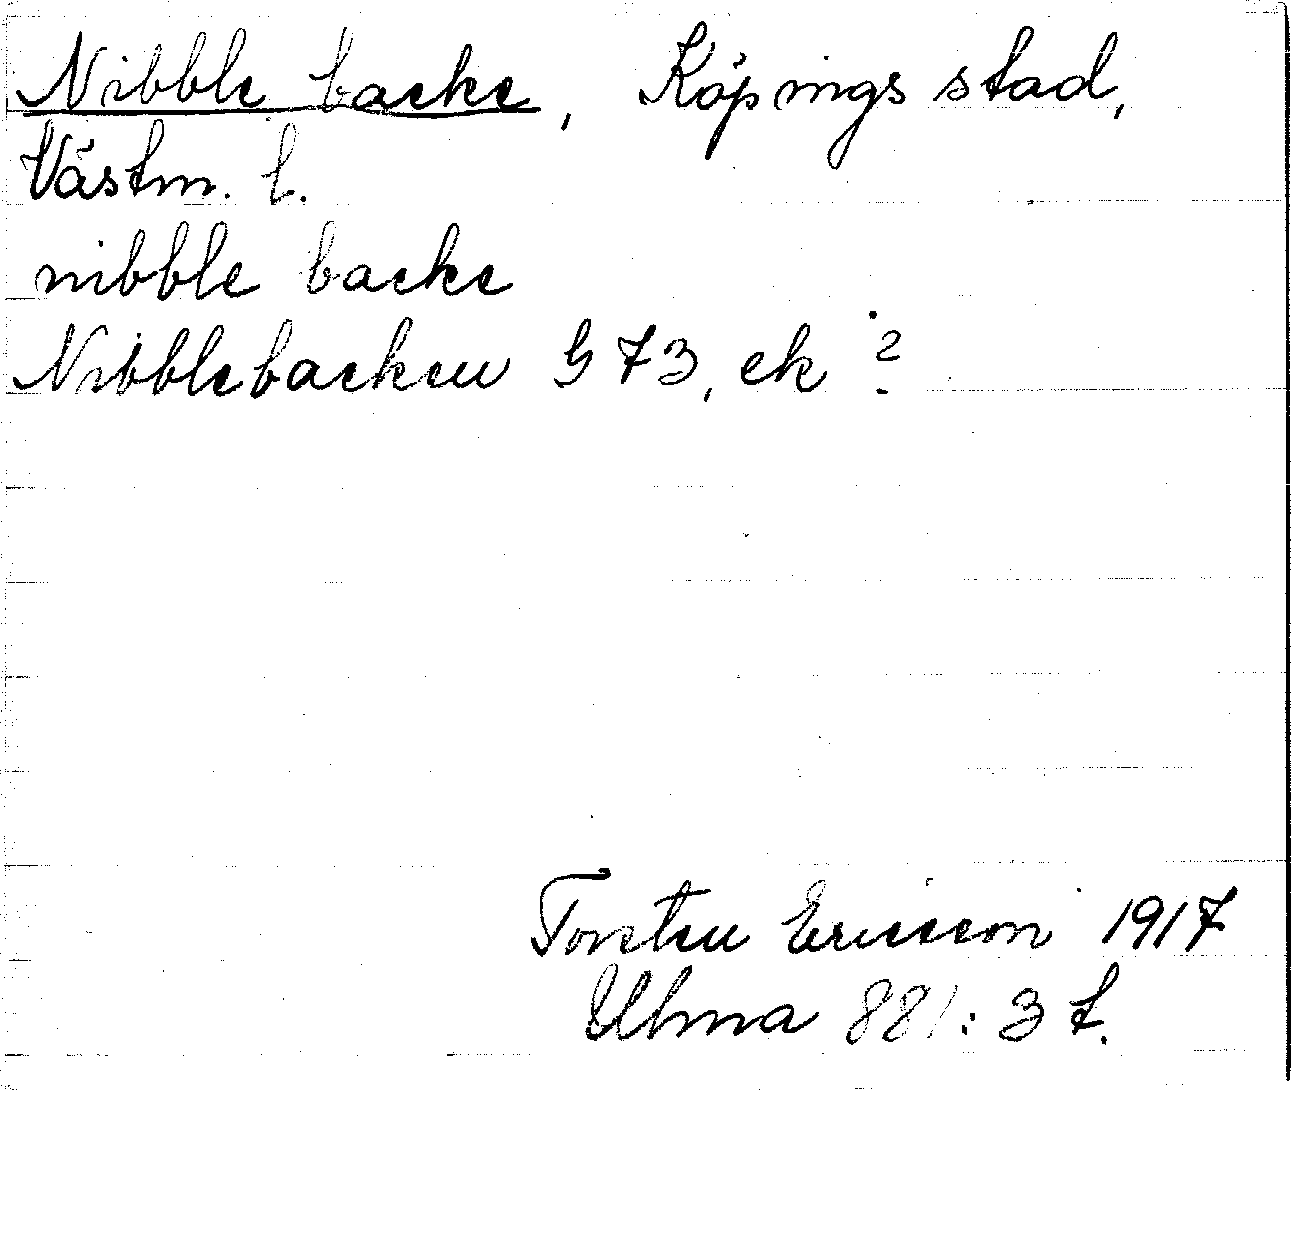 Nibble backe, Köpings stad,
Västm. l.
nibble backe
Nibblebacken G 73, ek ?
Torsten Ericson 1917
Ulma 881:3 f.